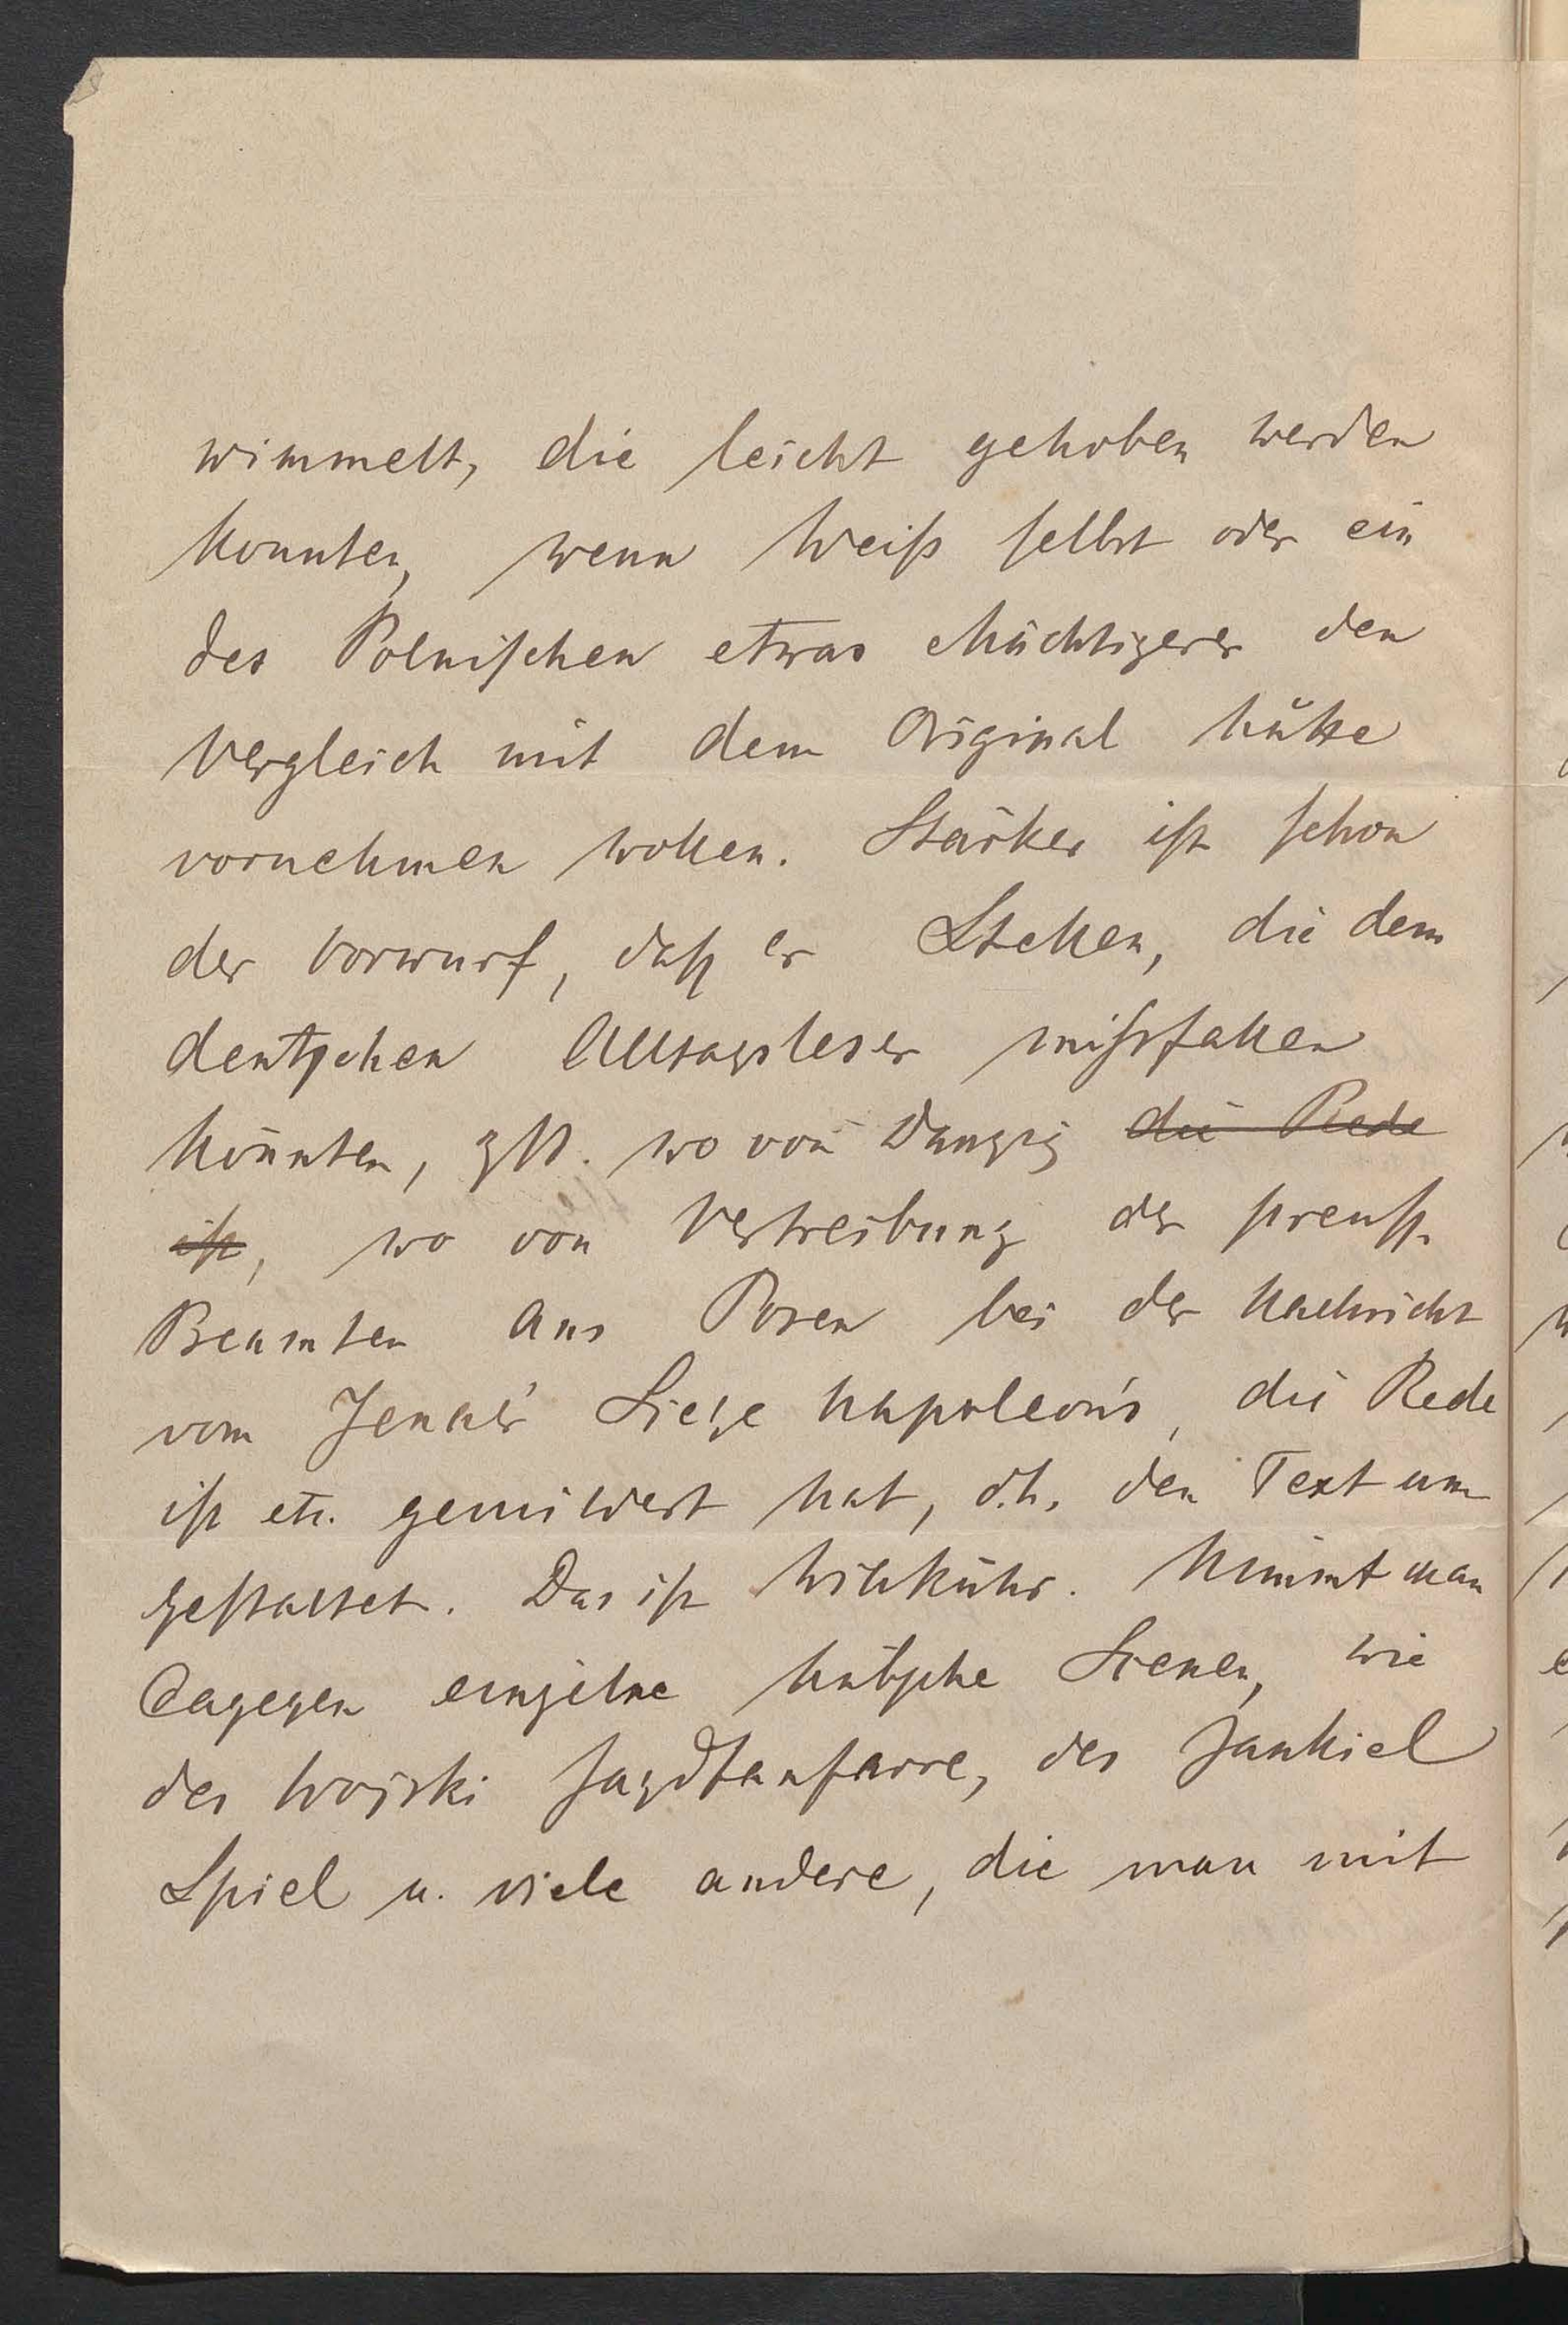 wimmelt, die leicht gehoben werden
konnten, wenn Weiß selbst oder ein
des Polnischen etwas Mächtigerer den
Vergleich mit dem Original hätte
vornehmen wollen. Stärker ist schon
der Vorwurf, daß er Stellen, die dem
deutschen Alltagsleser missfallen
könnten, zB. wo von Danzig die Rede
ist, wo von Vertreibung der preuß.
Beamten aus Posen bei der Nachricht
vom Jenaer Siege Napoleon's, die Rede
ist etc. gemildert hat, d.h. den Text um
gestaltet. Das ist Willkühr. Nimmt man
dagegen einzelne hübsche Scenen, wie
des Wojski Jagdfanfarre, des Jankiel
Spiel u. viele andere, die man mit